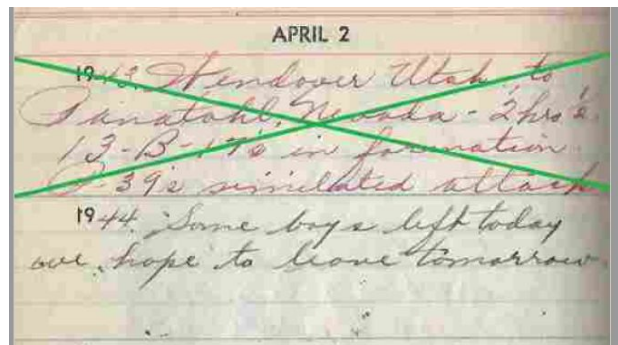 APRIL 2
1943. Wendover Utah, to
Nevada - 2 hrs's
13-B-17's in formation
P-39's similated attack
1944. Some boys left today
we hope to leave tomorrow.